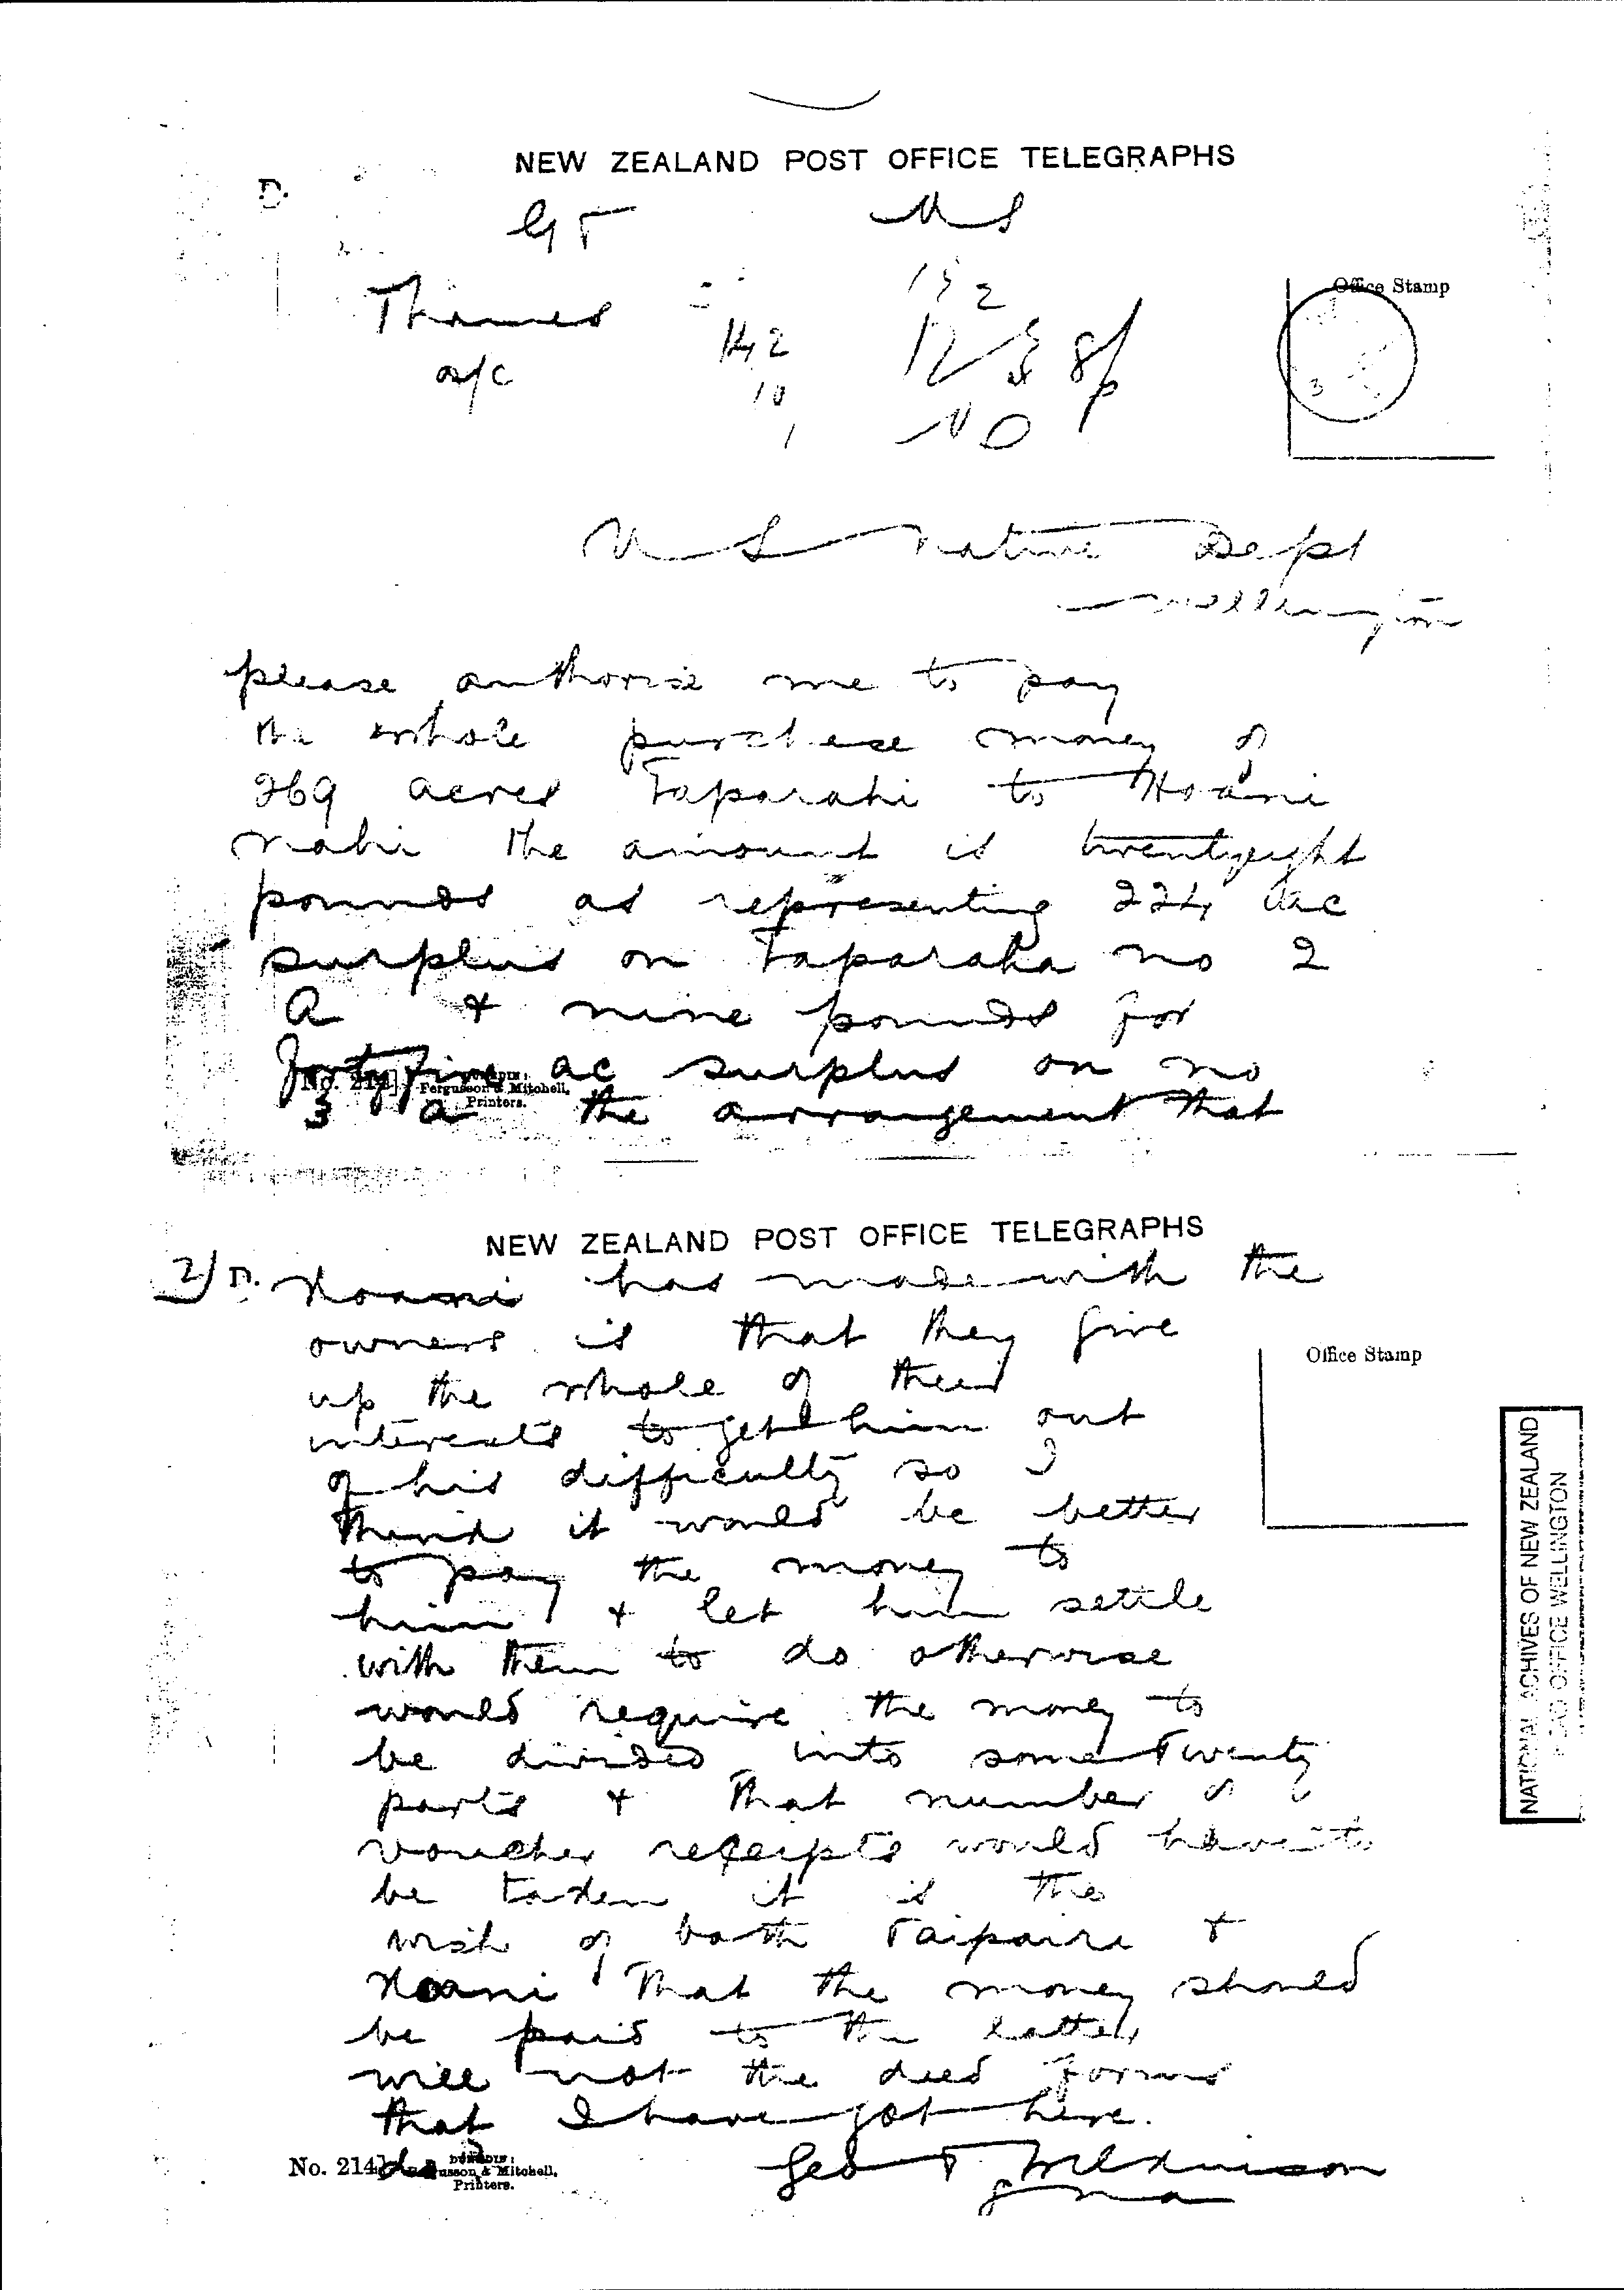 NEW ZEALAND POST OFFICE TELEGRAPHS
D.
GT
Thames
a/c
142
10
1
Office Stamp
Native Dept
Wellington
please authorise me to pay
the whole purchase money of
269 acres Taparahi to Hoani
nahi the amount is twentyeight
pounds as representing 224 ac
surplus on Taparaha no 2
A & nine pounds for
fortyfive ac surplus on no
3 a the arrangement that
No. 214]
Fergusson & Mitchell,
Printers.
NEW ZEALAND POST OFFICE TELEGRAPHS
2/ D. Hoani has made with the
owners is that they give
up the whole of their
interests to get him out
of his difficulty so I
think it would be better
to pay the money to
him & let him settle
with them to do otherwise
would require the money to
be divided into some twenty
parts & that number of
voucher receipts would have to
be taken it is the
wish of both Taipari &
Hoani that the money should
be paid to the latter
will not the deed forms
that I have got here.
do
Geo T Wilkinson
Office Stamp
No. 214]
& Mitchell,
Printers.
NATIONAL ARCHIVES OF NEW ZEALAND
HEAD OFFICE WELLINGTON